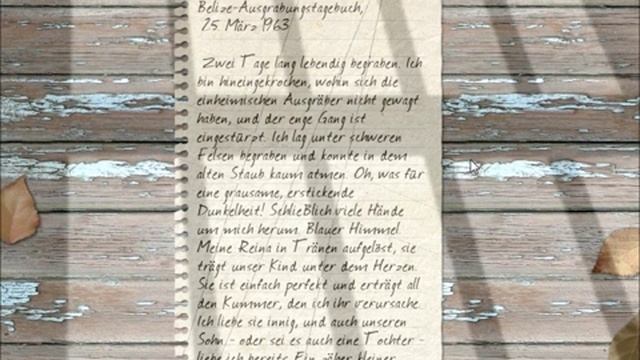 Belize-Ausgrabungstagebuch,
25. März 1963
Zwei Tage lang lebendig begraben. Ich
bin hineingekrochen, wohin sich die
einheimischen Ausgräber nicht gewagt
haben, und der enge Gang ist
eingestürzt. Ich lag unter schweren
Felsen begraben und konnte in dem
alten Staub kaum atmen. Oh, was für
eine grausame, erstickende
Dunkelheit! Schließlich viele Hände
um mich herum. Blauer Himmel.
Meine Reina in Tränen aufgelöst, sie
trägt unser Kind unter dem Herzen.
Sie ist einfach perfekt und erträgt all
den Kummer, den ich ihr verursache.
Ich liebe sie innig, und auch unseren
Sohn - oder sei es auch eine Tochter -
liebe ich bereits. Ein zäher kleiner